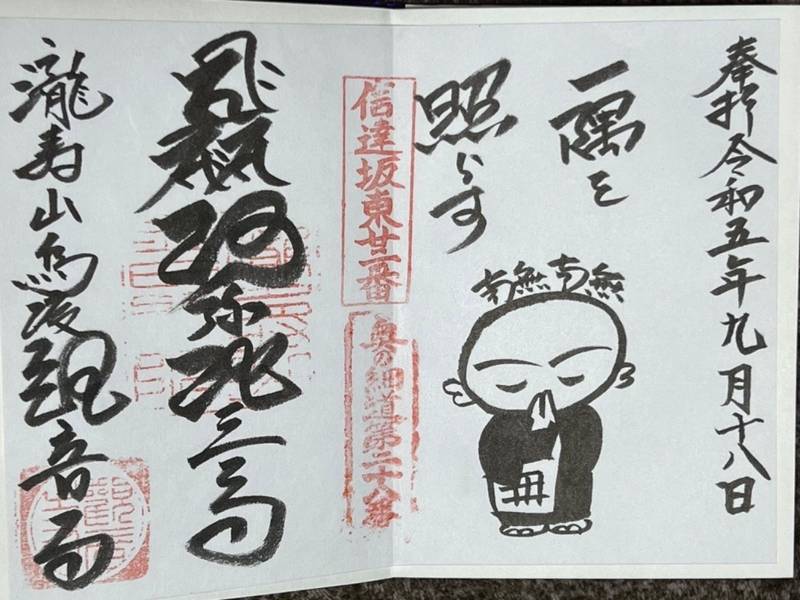 奉拝 令和五年九月十八日
一隅を
照らす
南無南無
信達坂東廿二番
奥の細道第二十八番
阿弥陀三
瀧寿山鳥渡観音寺